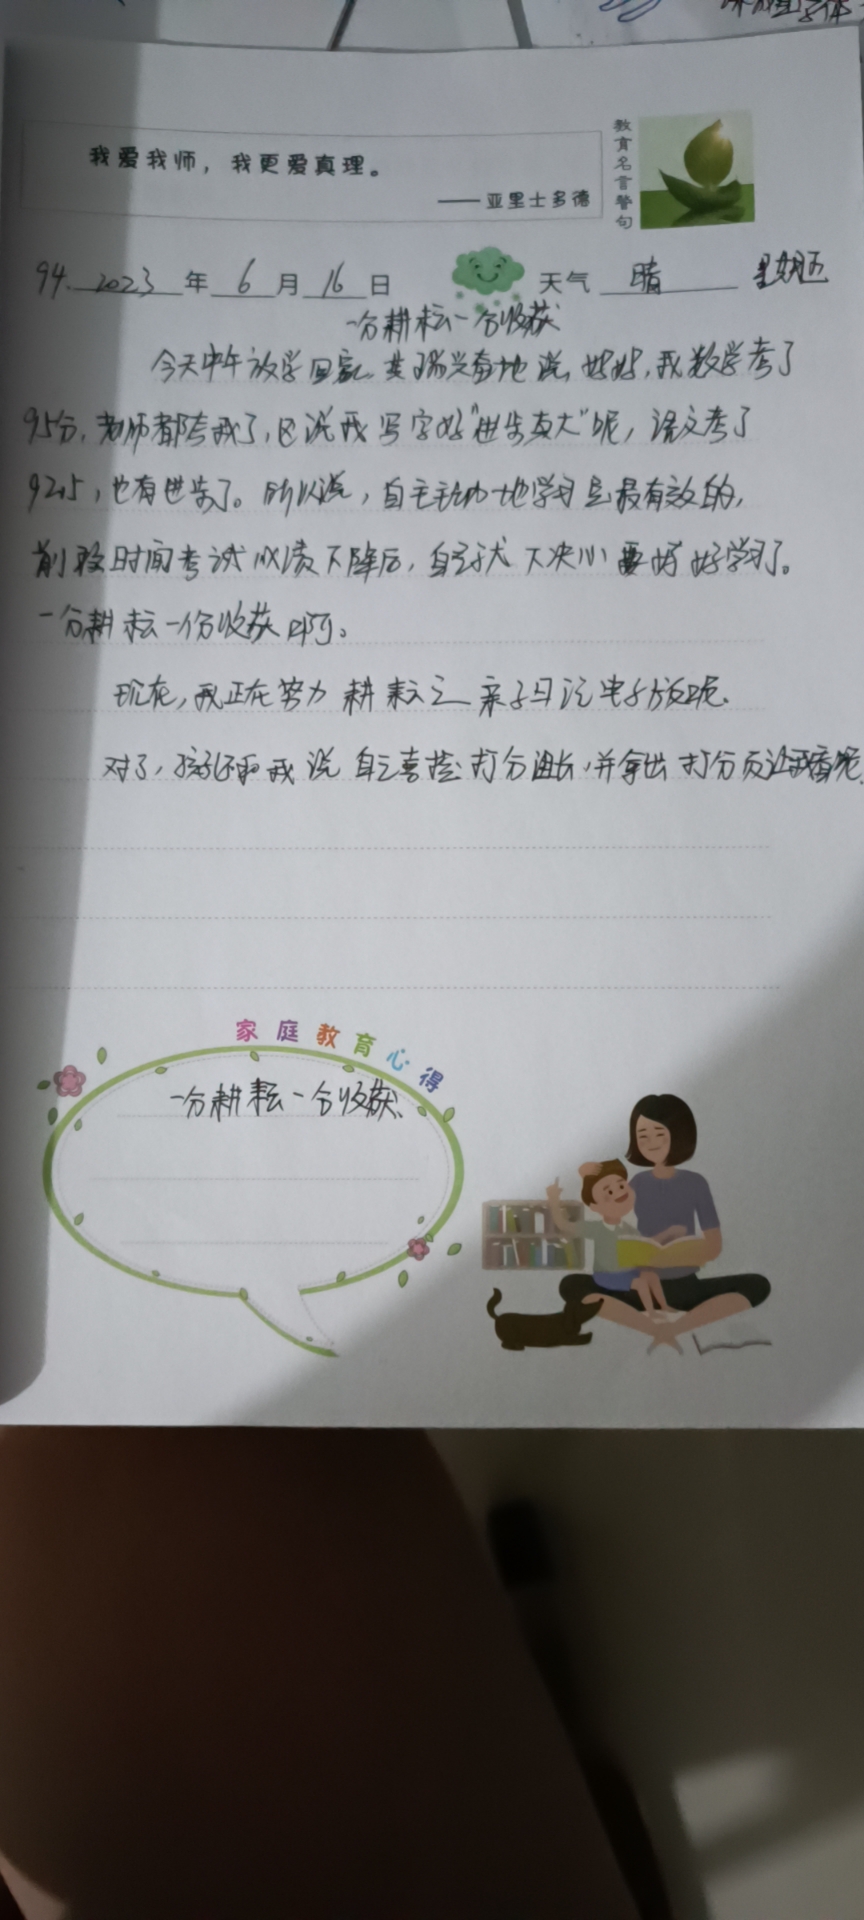 我爱我师，我更爱真理。
——亚里士多德
教育名言警句
94. 2023年6月16日 天气 晴 星期五
一分耕耘一分收获
今天中午放学回家 兴奋地说, 妈妈, 我数学考了
95分, 老师都夸我了, 还说我写字好"进步真大"呢, 语文考了
92.5, 也有进步了。所以说, 自主主动地学习是最有效的,
前段时间考试成绩下降后, 自己 下决心要好好学习了。
一分耕耘一份收获啊。
现在, 我正在努力耕耘之 亲子日记 呢.
对了, 孩子还和我说 自己喜 打分 , 并拿出打分 让我看呢.
家庭教育心得
一分耕耘一分收获.